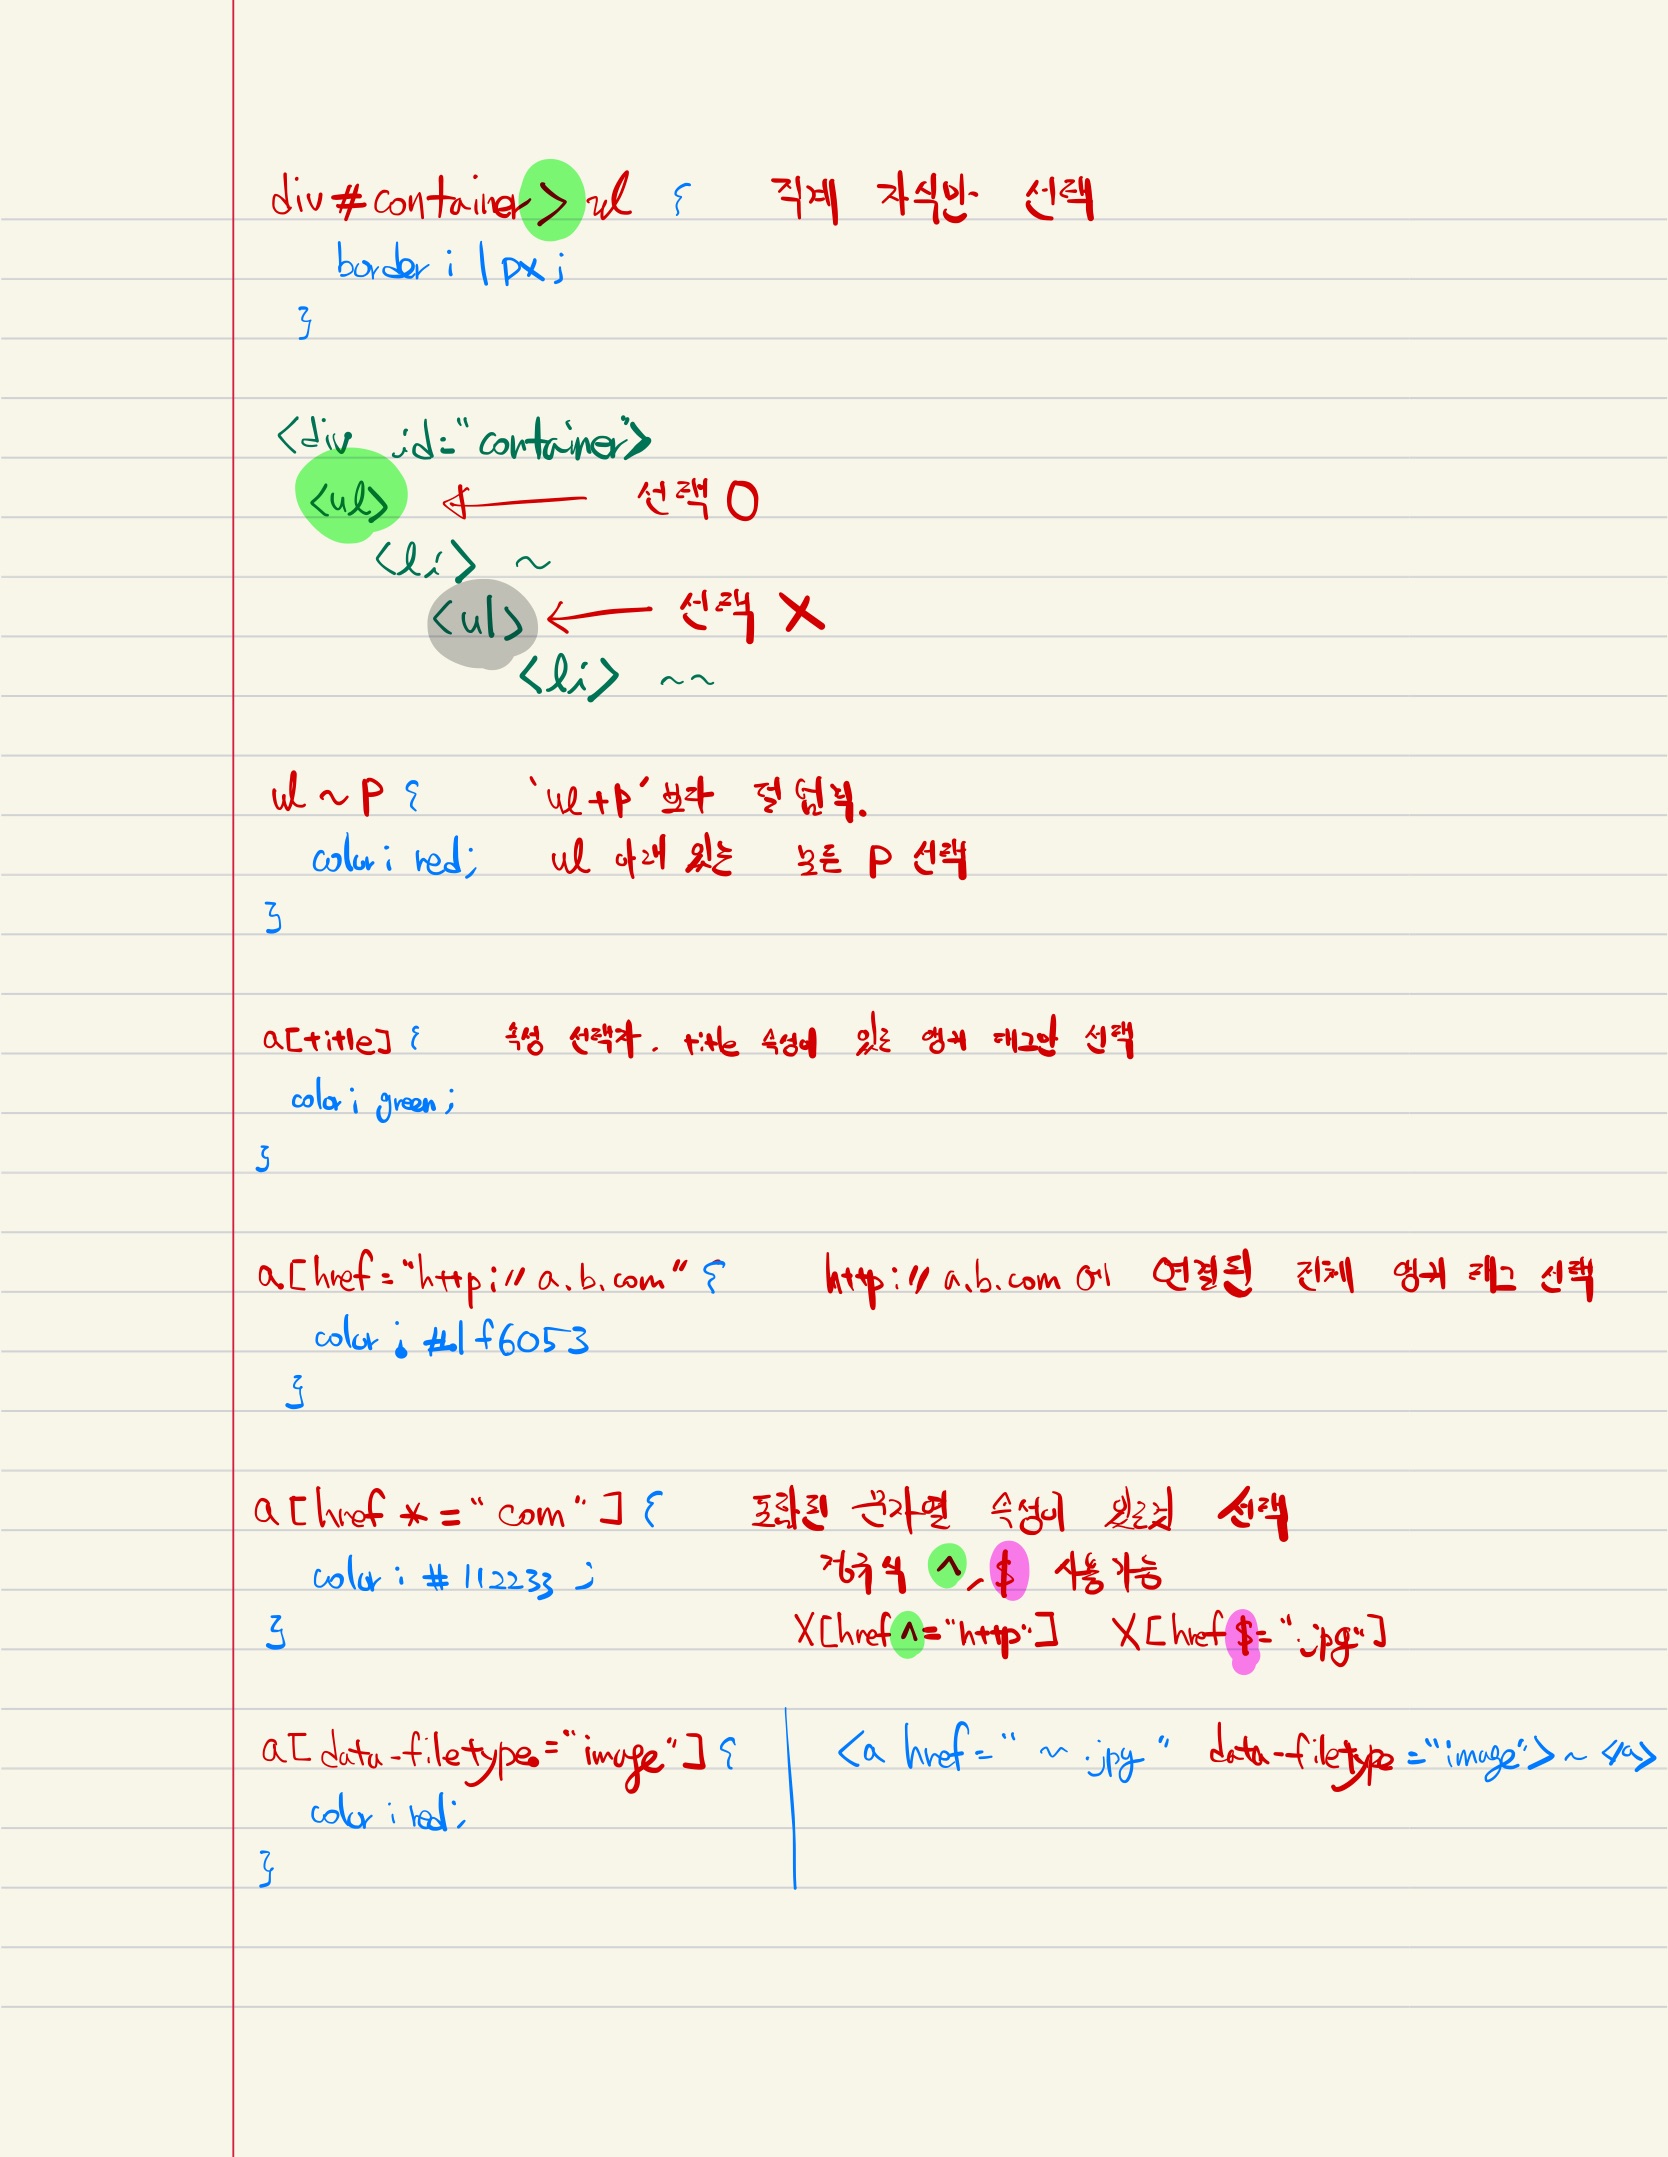 div#container > ul {    직계 자식만 선택
border : 1px;
}
<div id="container>
<ul> ← 선택 O
<li> ~
<ul> ← 선택 X
<li> ~~
ul ~ p {    'ul+p'보다 덜 엄격.
color: red;    ul 아래 있는 모든 p 선택
}
a[title] {    속성 선택자. title 속성이 있는 앵커 태그만 선택
color: green;
}
a[href="http://a.b.com" {    http://a.b.com 에 연결된 전체 앵커 태그 선택
color: #1f6053
}
a[href*="com"] {    포함된 문자열 속성이 있는것 선택
color: #112233;    정규식 ^, $ 사용 가능
}    X[href^="http"]    X[href$=".jpg"]
a[data-filetype="image"] {    <a href="~.jpg" data-filetype="image">~</a>
color: red;
}